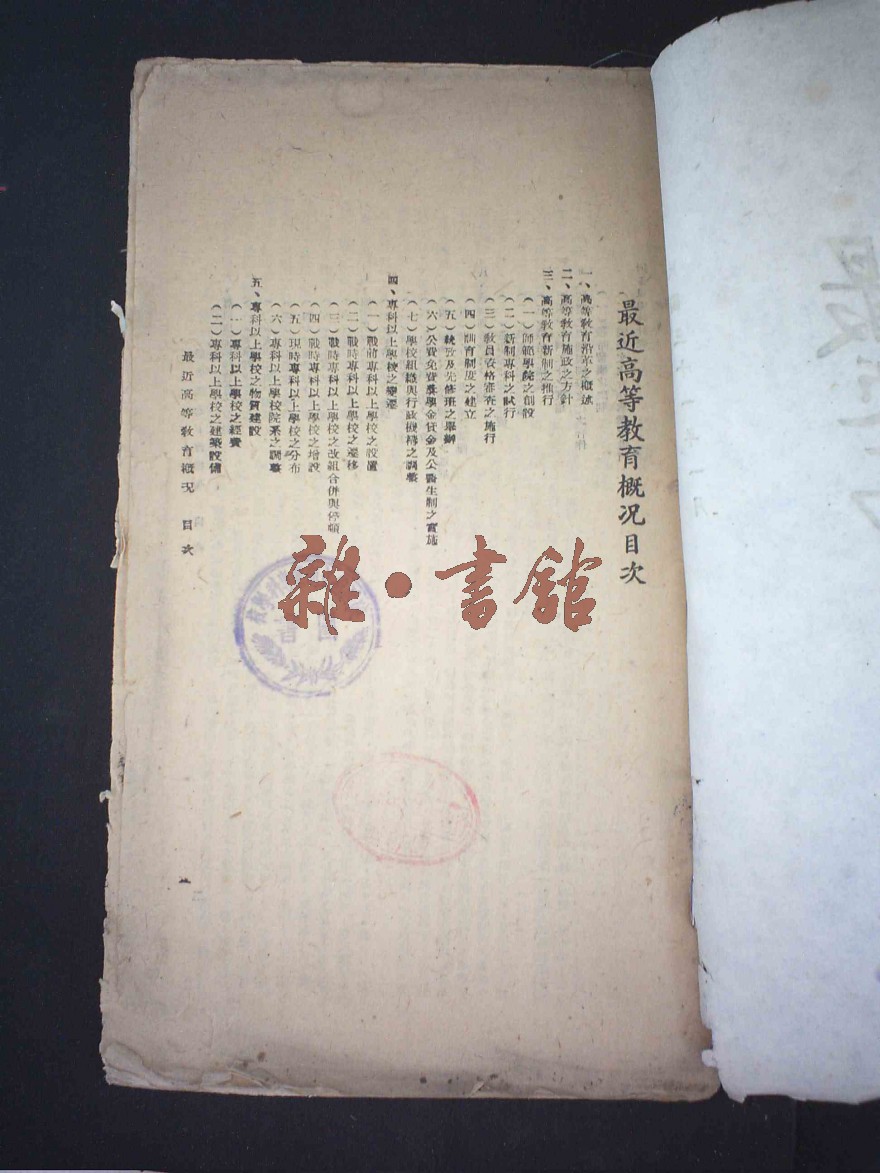 最近高等教育概况目次
一、高等教育沿革之概述
二、高等教育施政之方針
三、高等教育新制之推行
（一）師範學院之創設
（二）新制專科之試行
（三）教員資格審查之施行
（四）訓育制度之建立
（五）統攷及先修班之舉辦
（六）公費免費獎學金貸金及公醫生制之實施
（七）學校組織與行政機構之調整
四、專科以上學校之變遷
（一）戰前專科以上學校之設置
（二）戰時專科以上學校之遷移
（三）戰時專科以上學校之改組合併與停頓
（四）戰時專科以上學校之增設
（五）現時專科以上學校之分布
（六）專科以上學校院系之調整
五、專科以上學校之物質建設
（一）專科以上學校之經費
（二）專科以上學校之建築設備
最近高等教育概況 目次
一
雜·書館